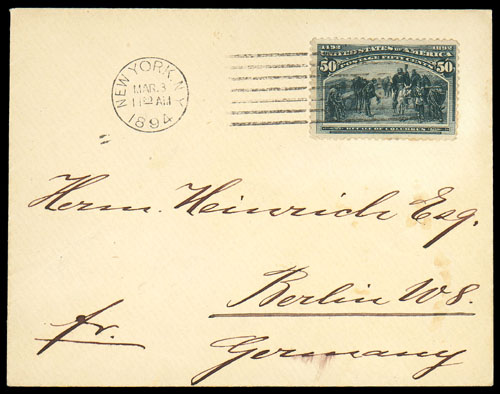 NEW YORK, N.Y.
MAR. 3
11 AM
1894
1492 1892
UNITED STATES OF AMERICA
POSTAGE FIFTY CENTS
50 50
RECALL OF COLUMBUS
Herm. Heinrich Esq.
Berlin W8.
fr.
Germany